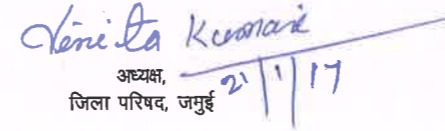 Vinita Kumari
अध्यक्ष,
जिला परिषद, जमुई
21/1/17